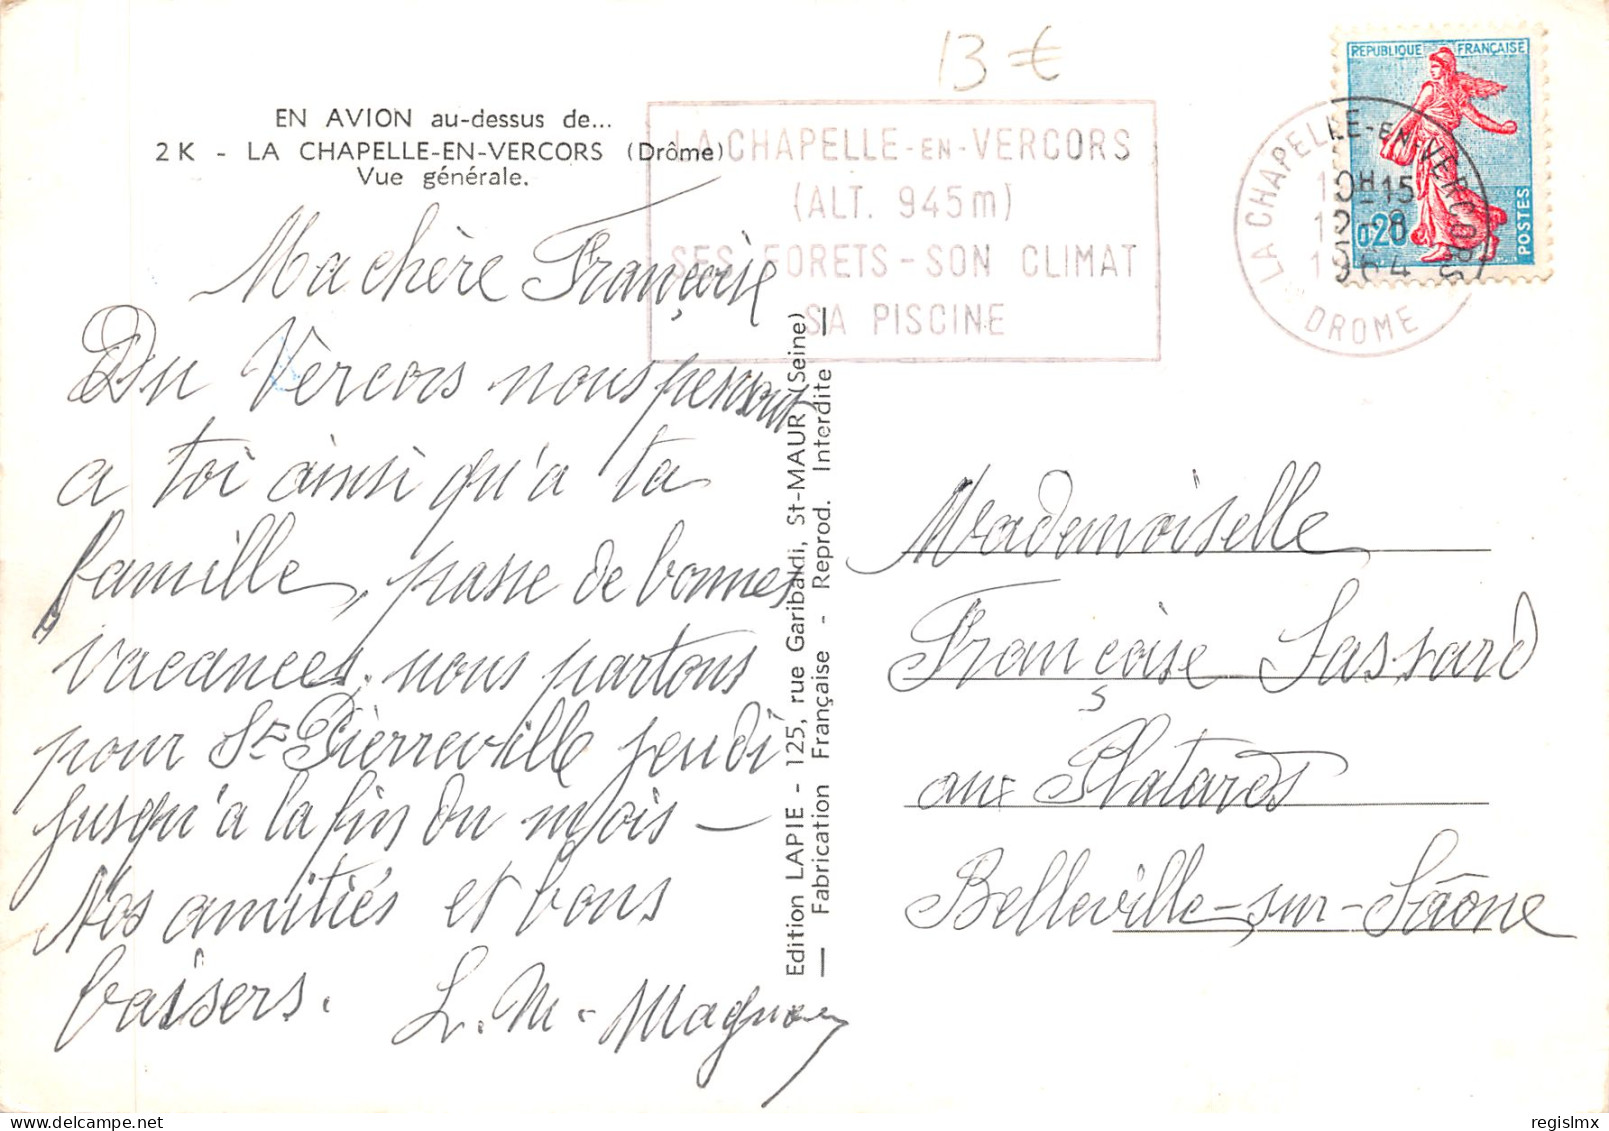 13 €
EN AVION au-dessus de...
2 K - LA CHAPELLE-EN-VERCORS (Drôme)
Vue générale.
LA CHAPELLE-EN-VERCORS
(ALT. 945m)
SES FORETS - SON CLIMAT
SA PISCINE
REPUBLIQUE FRANÇAISE
0,20
POSTES
LA CHAPELLE-EN-VERCORS
10H15
12-8
1964
DROME
Ma chère Françoise
Du Vercors nous pensons
a toi ainsi qu'a ta
famille, passe de bonnes
vacances, nous partons
pour St Pierreville jeudi
jusqu'a la fin du mois -
Nos amitiés et bons
baisers. L. M. Magnan
Edition LAPIE - 125, rue Garibaldi, St-MAUR (Seine)
— Fabrication Française - Reprod. Interdite —
Mademoiselle
Françoise Sassard
aux Platards
Belleville-sur-Saône
regislmx
delcampe.net